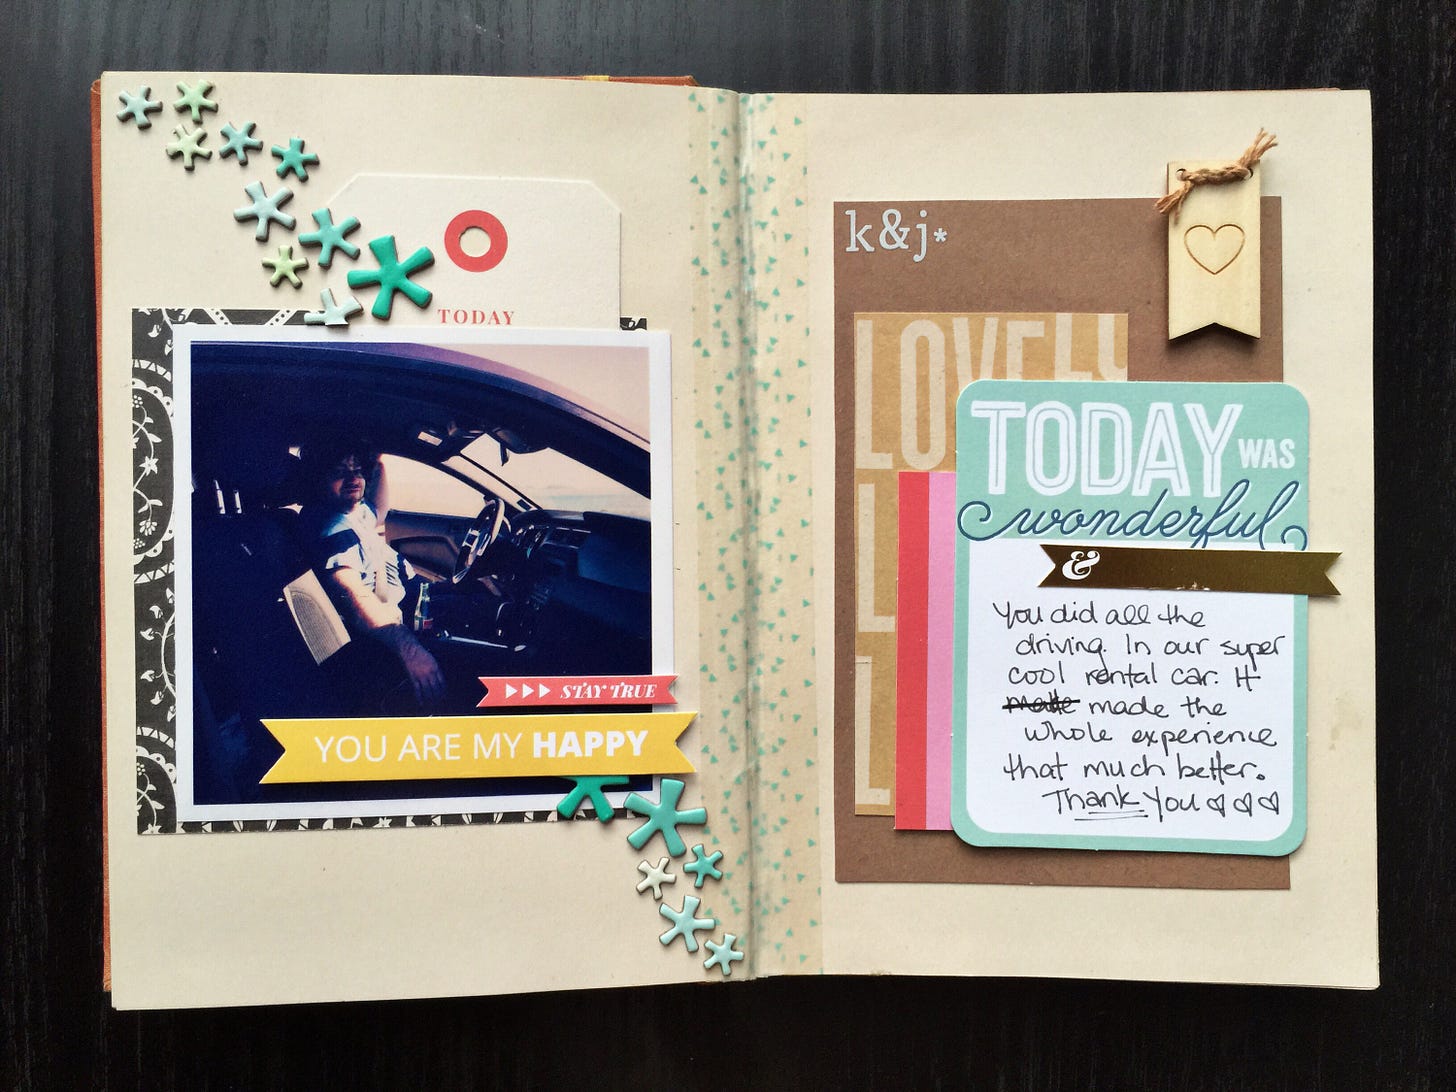 TODAY
▸▸▸ STAY TRUE
YOU ARE MY HAPPY
k&j*
LOVELY
L
L
L
TODAY WAS
wonderful
&
You did all the
driving. In our super
cool rental car. It
made the
whole experience
that much better.
Thank You ♡♡♡